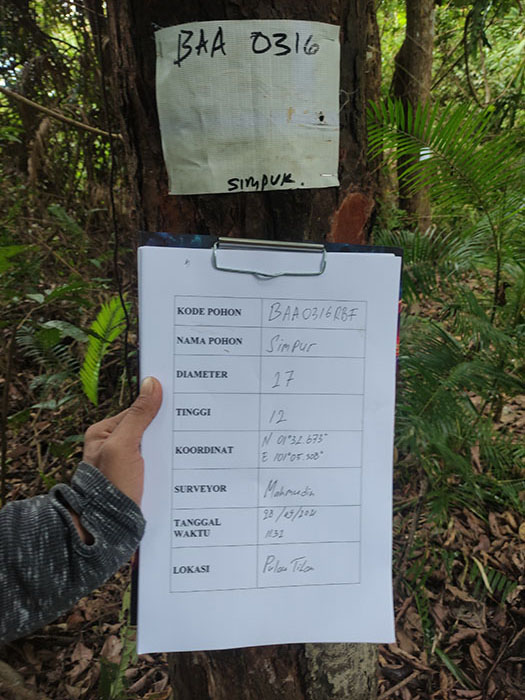 BAA 0316
SIMPUK.
KODE POHON BAA0316RBF
NAMA POHON Simpur
DIAMETER 27
TINGGI 12
KOORDINAT N 01°32.673"
E 101°05.308"
SURVEYOR Mahmudin
TANGGAL 28/09/2021
WAKTU 11:32
LOKASI Pulau Tilan